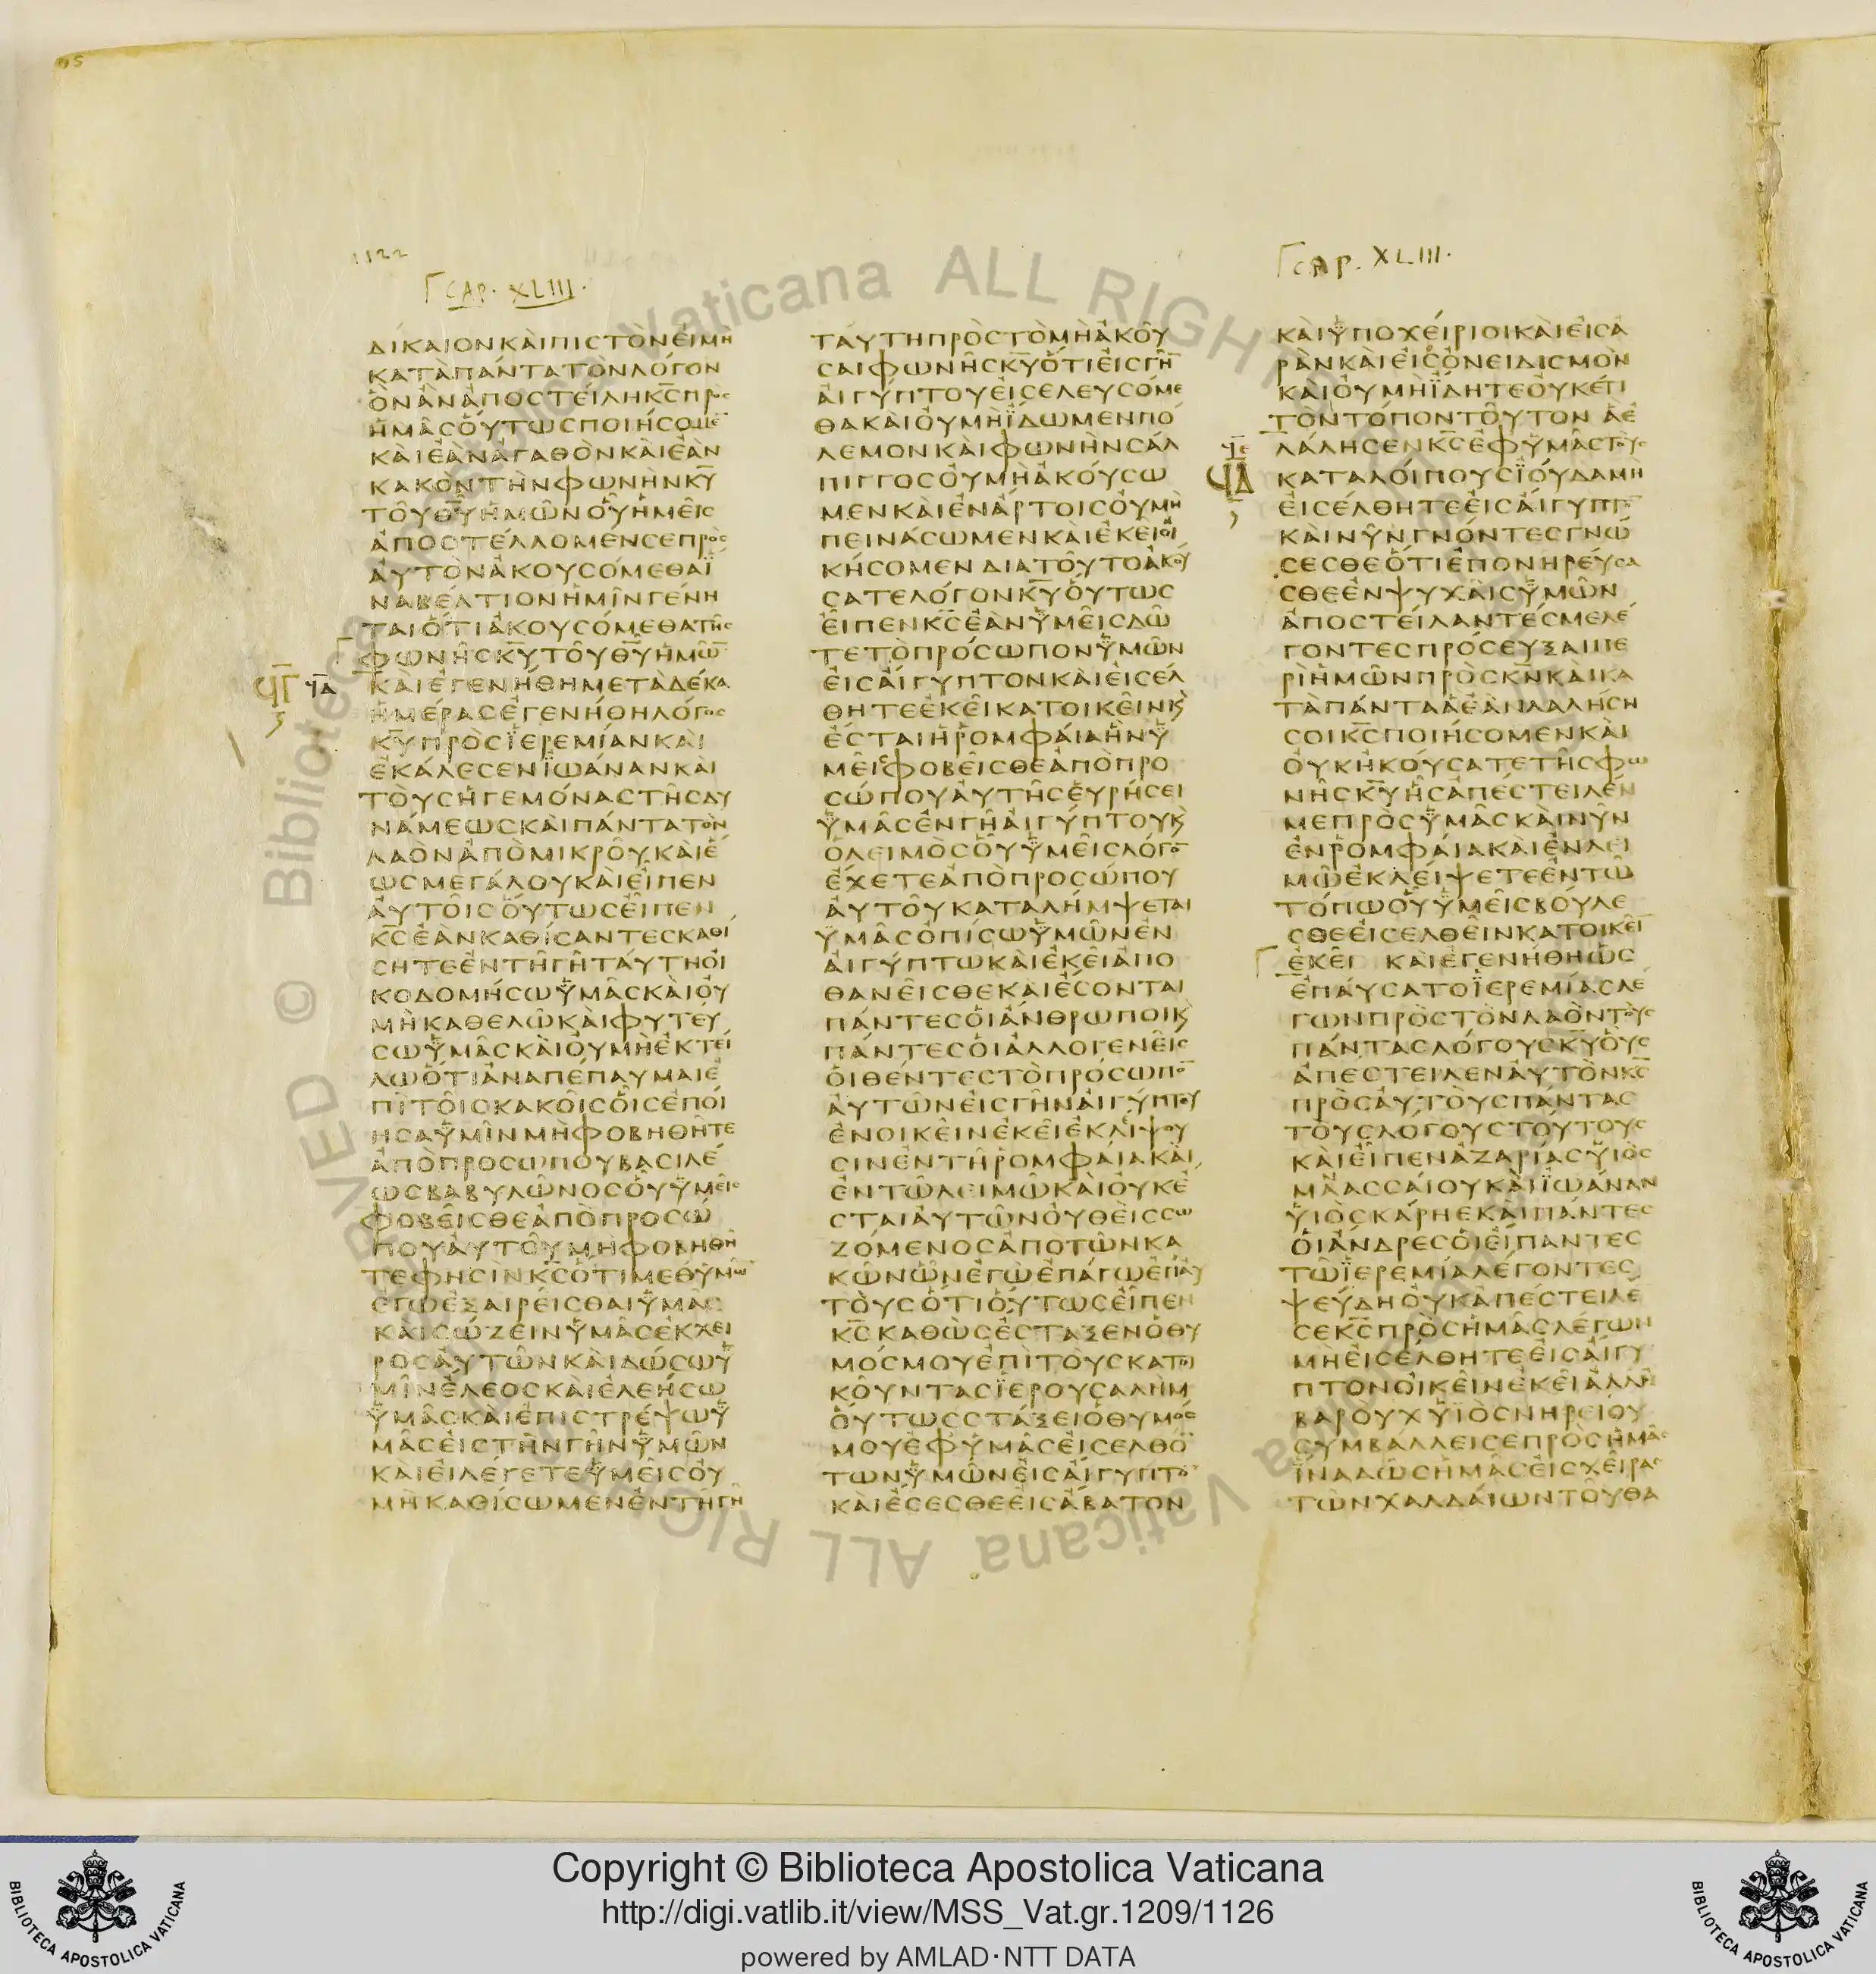 1122
CAP. XLIII.
ΔΙΚΑΙΟΝΚΑΙΠΙΣΤΟΝΕΙΜΗ
ΚΑΤΑΠΑΝΤΑΤΟΝΛΟΓΟΝ
ΟΝΑΝΑΠΟΣΤΕΙΛΗΚ̅Σ̅ΠΡΟΣ
ΗΜΑΣΟΥΤΩΣΠΟΙΗΣΟΜΕ̅
ΚΑΙΕΑΝΑΓΑΘΟΝΚΑΙΕΑΝ
ΚΑΚΟΝΤΗΝΦΩΝΗΝΚ̅Υ̅
ΤΟΥΘ̅Υ̅ΗΜΩΝΟΥΗΜΕΙΣ
ΑΠΟΣΤΕΛΛΟΜΕΝΣΕΠΡΟΣ
ΑΥΤΟΝΑΚΟΥΣΟΜΕΘΑΪ
ΝΑΒΕΛΤΙΟΝΗΜΙΝΓΕΝΗ
ΤΑΙΟΤΙΑΚΟΥΣΟΜΕΘΑΤΗΣ
ΦΩΝΗΣΚ̅Υ̅ΤΟΥΘ̅Υ̅ΗΜΩ̅
ϤΓ ϤΑ ΚΑΙΕΓΕΝΗΘΗΜΕΤΑΔΕΚΑ
ΗΜΕΡΑΣΕΓΕΝΗΘΗΛΟΓΟΣ
Κ̅Υ̅ΠΡΟΣΪΕΡΕΜΙΑΝΚΑΙ
ΕΚΑΛΕΣΕΝΪΩΑΝΑΝΚΑΙ
ΤΟΥΣΗΓΕΜΟΝΑΣΤΗΣΔΥ
ΝΑΜΕΩΣΚΑΙΠΑΝΤΑΤΟΝ
ΛΑΟΝΑΠΟΜΙΚΡΟΥΚΑΙΕ
ΩΣΜΕΓΑΛΟΥΚΑΙΕΙΠΕΝ
ΑΥΤΟΙΣΟΥΤΩΣΕΙΠΕΝ
Κ̅Σ̅ΕΑΝΚΑΘΙΣΑΝΤΕΣΚΑΘΙ
ΣΗΤΕΕΝΤΗΓΗΤΑΥΤΗΟΙ
ΚΟΔΟΜΗΣΩΫΜΑΣΚΑΙΟΥ
ΜΗΚΑΘΕΛΩΚΑΙΦΥΤΕΥ
ΣΩΫΜΑΣΚΑΙΟΥΜΗΕΚΤΕΙ
ΛΩΟΤΙΑΝΑΠΕΠΑΥΜΑΙΕ
ΠΙΤΟΙΣΚΑΚΟΙΣΟΙΣΕΠΟΙ
ΗΣΑΫΜΙΝΜΗΦΟΒΗΘΗΤΕ
ΑΠΟΠΡΟΣΩΠΟΥΒΑΣΙΛΕ
ΩΣΒΑΒΥΛΩΝΟΣΟΥΫΜΕΙΣ
ΦΟΒΕΙΣΘΕΑΠΟΠΡΟΣΩ
ΠΟΥΑΥΤΟΥΜΗΦΟΒΗΘΗ
ΤΕΦΗΣΙΝΚ̅Σ̅ΟΤΙΜΕΘΥΜΩ̅
ΕΓΩΕΞΑΙΡΕΙΣΘΑΙΫΜΑΣ
ΚΑΙΣΩΖΕΙΝΫΜΑΣΕΚΧΕΙ
ΡΟΣΑΥΤΩΝΚΑΙΔΩΣΩΫ
ΜΙΝΕΛΕΟΣΚΑΙΕΛΕΗΣΩ
ΫΜΑΣΚΑΙΕΠΙΣΤΡΕΨΩΫ
ΜΑΣΕΙΣΤΗΝΓΗΝΫΜΩΝ
ΚΑΙΕΙΛΕΓΕΤΕΫΜΕΙΣΟΥ
ΜΗΚΑΘΙΣΩΜΕΝΕΝΤΗΓΗ
ΤΑΥΤΗΠΡΟΣΤΟΜΗΑΚΟΥ
ΣΑΙΦΩΝΗΣΚ̅Υ̅ΟΤΙΕΙΣΓΗ̅
ΑΙΓΥΠΤΟΥΕΙΣΕΛΕΥΣΟΜΕ
ΘΑΚΑΙΟΥΜΗΪΔΩΜΕΝΠΟ
ΛΕΜΟΝΚΑΙΦΩΝΗΝΣΑΛ
ΠΙΓΓΟΣΟΥΜΗΑΚΟΥΣΩ
ΜΕΝΚΑΙΕΝΑΡΤΟΙΣΟΥΜΗ
ΠΕΙΝΑΣΩΜΕΝΚΑΙΕΚΕΙΟΙ
ΚΗΣΟΜΕΝΔΙΑΤΟΥΤΟΑΚΟΥ
ΣΑΤΕΛΟΓΟΝΚ̅Υ̅ΟΥΤΩΣ
ΕΙΠΕΝΚ̅Σ̅ΕΑΝΫΜΕΙΣΔΩ
ΤΕΤΟΠΡΟΣΩΠΟΝΫΜΩΝ
ΕΙΣΑΙΓΥΠΤΟΝΚΑΙΕΙΣΕΛ
ΘΗΤΕΕΚΕΙΚΑΤΟΙΚΕΙΝϏ
ΕΣΤΑΙΗΡΟΜΦΑΙΑΗΝΫ
ΜΕΙΣΦΟΒΕΙΣΘΕΑΠΟΠΡΟ
ΣΩΠΟΥΑΥΤΗΣΕΥΡΗΣΕΙ
ΫΜΑΣΕΝΓΗΑΙΓΥΠΤΟΥϏ
ΟΛΕΙΜΟΣΟΥΫΜΕΙΣΛΟΓΟ̅
ΕΧΕΤΕΑΠΟΠΡΟΣΩΠΟΥ
ΑΥΤΟΥΚΑΤΑΛΗΜΨΕΤΑΙ
ΫΜΑΣΟΠΙΣΩΫΜΩΝΕΝ
ΑΙΓΥΠΤΩΚΑΙΕΚΕΙΑΠΟ
ΘΑΝΕΙΣΘΕΚΑΙΕΣΟΝΤΑΙ
ΠΑΝΤΕΣΟΙΑΝΘΡΩΠΟΙϏ
ΠΑΝΤΕΣΟΙΑΛΛΟΓΕΝΕΙΣ
ΟΙΘΕΝΤΕΣΤΟΠΡΟΣΩΠΟ̅
ΑΥΤΩΝΕΙΣΓΗΝΑΙΓΥΠΤΟΥ
ΕΝΟΙΚΕΙΝΕΚΕΙΕΚΛΙΨΟΥ
ΣΙΝΕΝΤΗΡΟΜΦΑΙΑΚΑΙ
ΕΝΤΩΛΕΙΜΩΚΑΙΟΥΚΕ
ΣΤΑΙΑΥΤΩΝΟΥΘΕΙΣΣΩ
ΖΟΜΕΝΟΣΑΠΟΤΩΝΚΑ
ΚΩΝΩΝΕΓΩΕΠΑΓΩΕΠΑΥ
ΤΟΥΣΟΤΙΟΥΤΩΣΕΙΠΕΝ
Κ̅Σ̅ΚΑΘΩΣΕΣΤΑΞΕΝΟΘΥ
ΜΟΣΜΟΥΕΠΙΤΟΥΣΚΑΤΟΙ
ΚΟΥΝΤΑΣΪΕΡΟΥΣΑΛΗΜ
ΟΥΤΩΣΣΤΑΞΕΙΟΘΥΜΟΣ
ΜΟΥΕΦΥΜΑΣΕΙΣΕΛΘΟ̅
ΤΩΝΫΜΩΝΕΙΣΑΙΓΥΠΤΟ̅
ΚΑΙΕΣΕΣΘΕΕΙΣΑΒΑΤΟΝ
CAP. XLIII.
ΚΑΙΫΠΟΧΕΙΡΙΟΙΚΑΙΕΙΣΑ
ΡΑΝΚΑΙΕΙΣΟΝΕΙΔΙΣΜΟΝ
ΚΑΙΟΥΜΗΪΔΗΤΕΟΥΚΕΤΙ
ΤΟΝΤΟΠΟΝΤΟΥΤΟΝ ΑΕ
ϤΕ ΛΑΛΗΣΕΝΚ̅Σ̅ΕΦΫΜΑΣΤΟΥΣ
ϤΔ ΚΑΤΑΛΟΙΠΟΥΣΪΟΥΔΑΜΗ
ΕΙΣΕΛΘΗΤΕΕΙΣΑΙΓΥΠΤΟ̅
ΚΑΙΝΥΝΓΝΟΝΤΕΣΓΝΩ
ΣΕΣΘΕΟΤΙΕΠΟΝΗΡΕΥΣΑ
ΣΘΕΕΝΨΥΧΑΙΣΫΜΩΝ
ΑΠΟΣΤΕΙΛΑΝΤΕΣΜΕΛΕ
ΓΟΝΤΕΣΠΡΟΣΕΥΞΑΙΠΕ
ΡΙΗΜΩΝΠΡΟΣΚ̅Ν̅ΚΑΙΚΑ
ΤΑΠΑΝΤΑΑΕΑΝΛΑΛΗΣΗ
ΣΟΙΚ̅Σ̅ΠΟΙΗΣΟΜΕΝΚΑΙ
ΟΥΚΗΚΟΥΣΑΤΕΤΗΣΦΩ
ΝΗΣΚ̅Υ̅ΗΣΑΠΕΣΤΕΙΛΕΝ
ΜΕΠΡΟΣΫΜΑΣΚΑΙΝΥΝ
ΕΝΡΟΜΦΑΙΑΚΑΙΕΝΛΕΙ
ΜΩΕΚΛΕΙΨΕΤΕΕΝΤΩ
ΤΟΠΩΟΥΫΜΕΙΣΒΟΥΛΕ
ΣΘΕΕΙΣΕΛΘΕΙΝΚΑΤΟΙΚΕΙ̅
ΕΚΕΙ ΚΑΙΕΓΕΝΗΘΗΩΣ
ΕΠΑΥΣΑΤΟΪΕΡΕΜΙΑΣΛΕ
ΓΩΝΠΡΟΣΤΟΝΛΑΟΝΤΟΥΣ
ΠΑΝΤΑΣΛΟΓΟΥΣΚ̅Υ̅ΟΥΣ
ΑΠΕΣΤΕΙΛΕΝΑΥΤΟΝΚ̅Σ̅
ΠΡΟΣΑΥΤΟΥΣΠΑΝΤΑΣ
ΤΟΥΣΛΟΓΟΥΣΤΟΥΤΟΥΣ
ΚΑΙΕΙΠΕΝΑΖΑΡΙΑΣΫΙΟΣ
ΜΑΑΣΣΑΙΟΥΚΑΙΪΩΑΝΑΝ
ΫΙΟΣΚΑΡΗΕΚΑΙΠΑΝΤΕΣ
ΟΙΑΝΔΡΕΣΟΙΕΙΠΑΝΤΕΣ
ΤΩΪΕΡΕΜΙΑΛΕΓΟΝΤΕΣ
ΨΕΥΔΗΟΥΚΑΠΕΣΤΕΙΛΕ
ΣΕΚ̅Σ̅ΠΡΟΣΗΜΑΣΛΕΓΩΝ
ΜΗΕΙΣΕΛΘΗΤΕΕΙΣΑΙΓΥ
ΠΤΟΝΟΙΚΕΙΝΕΚΕΙΑΛΛΗ
ΒΑΡΟΥΧΫΙΟΣΝΗΡΕΙΟΥ
ΣΥΜΒΑΛΛΕΙΣΕΠΡΟΣΗΜΑΣ
ΪΝΑΔΩΣΗΜΑΣΕΙΣΧΕΙΡΑΣ
ΤΩΝΧΑΛΔΑΙΩΝΤΟΥΘΑ
© Biblioteca Vaticana ALL RIGHTS RESERVED
BIBLIOTECA APOSTOLICA VATICANA
Copyright © Biblioteca Apostolica Vaticana
http://digi.vatlib.it/view/MSS_Vat.gr.1209/1126
powered by AMLAD·NTT DATA
BIBLIOTECA APOSTOLICA VATICANA